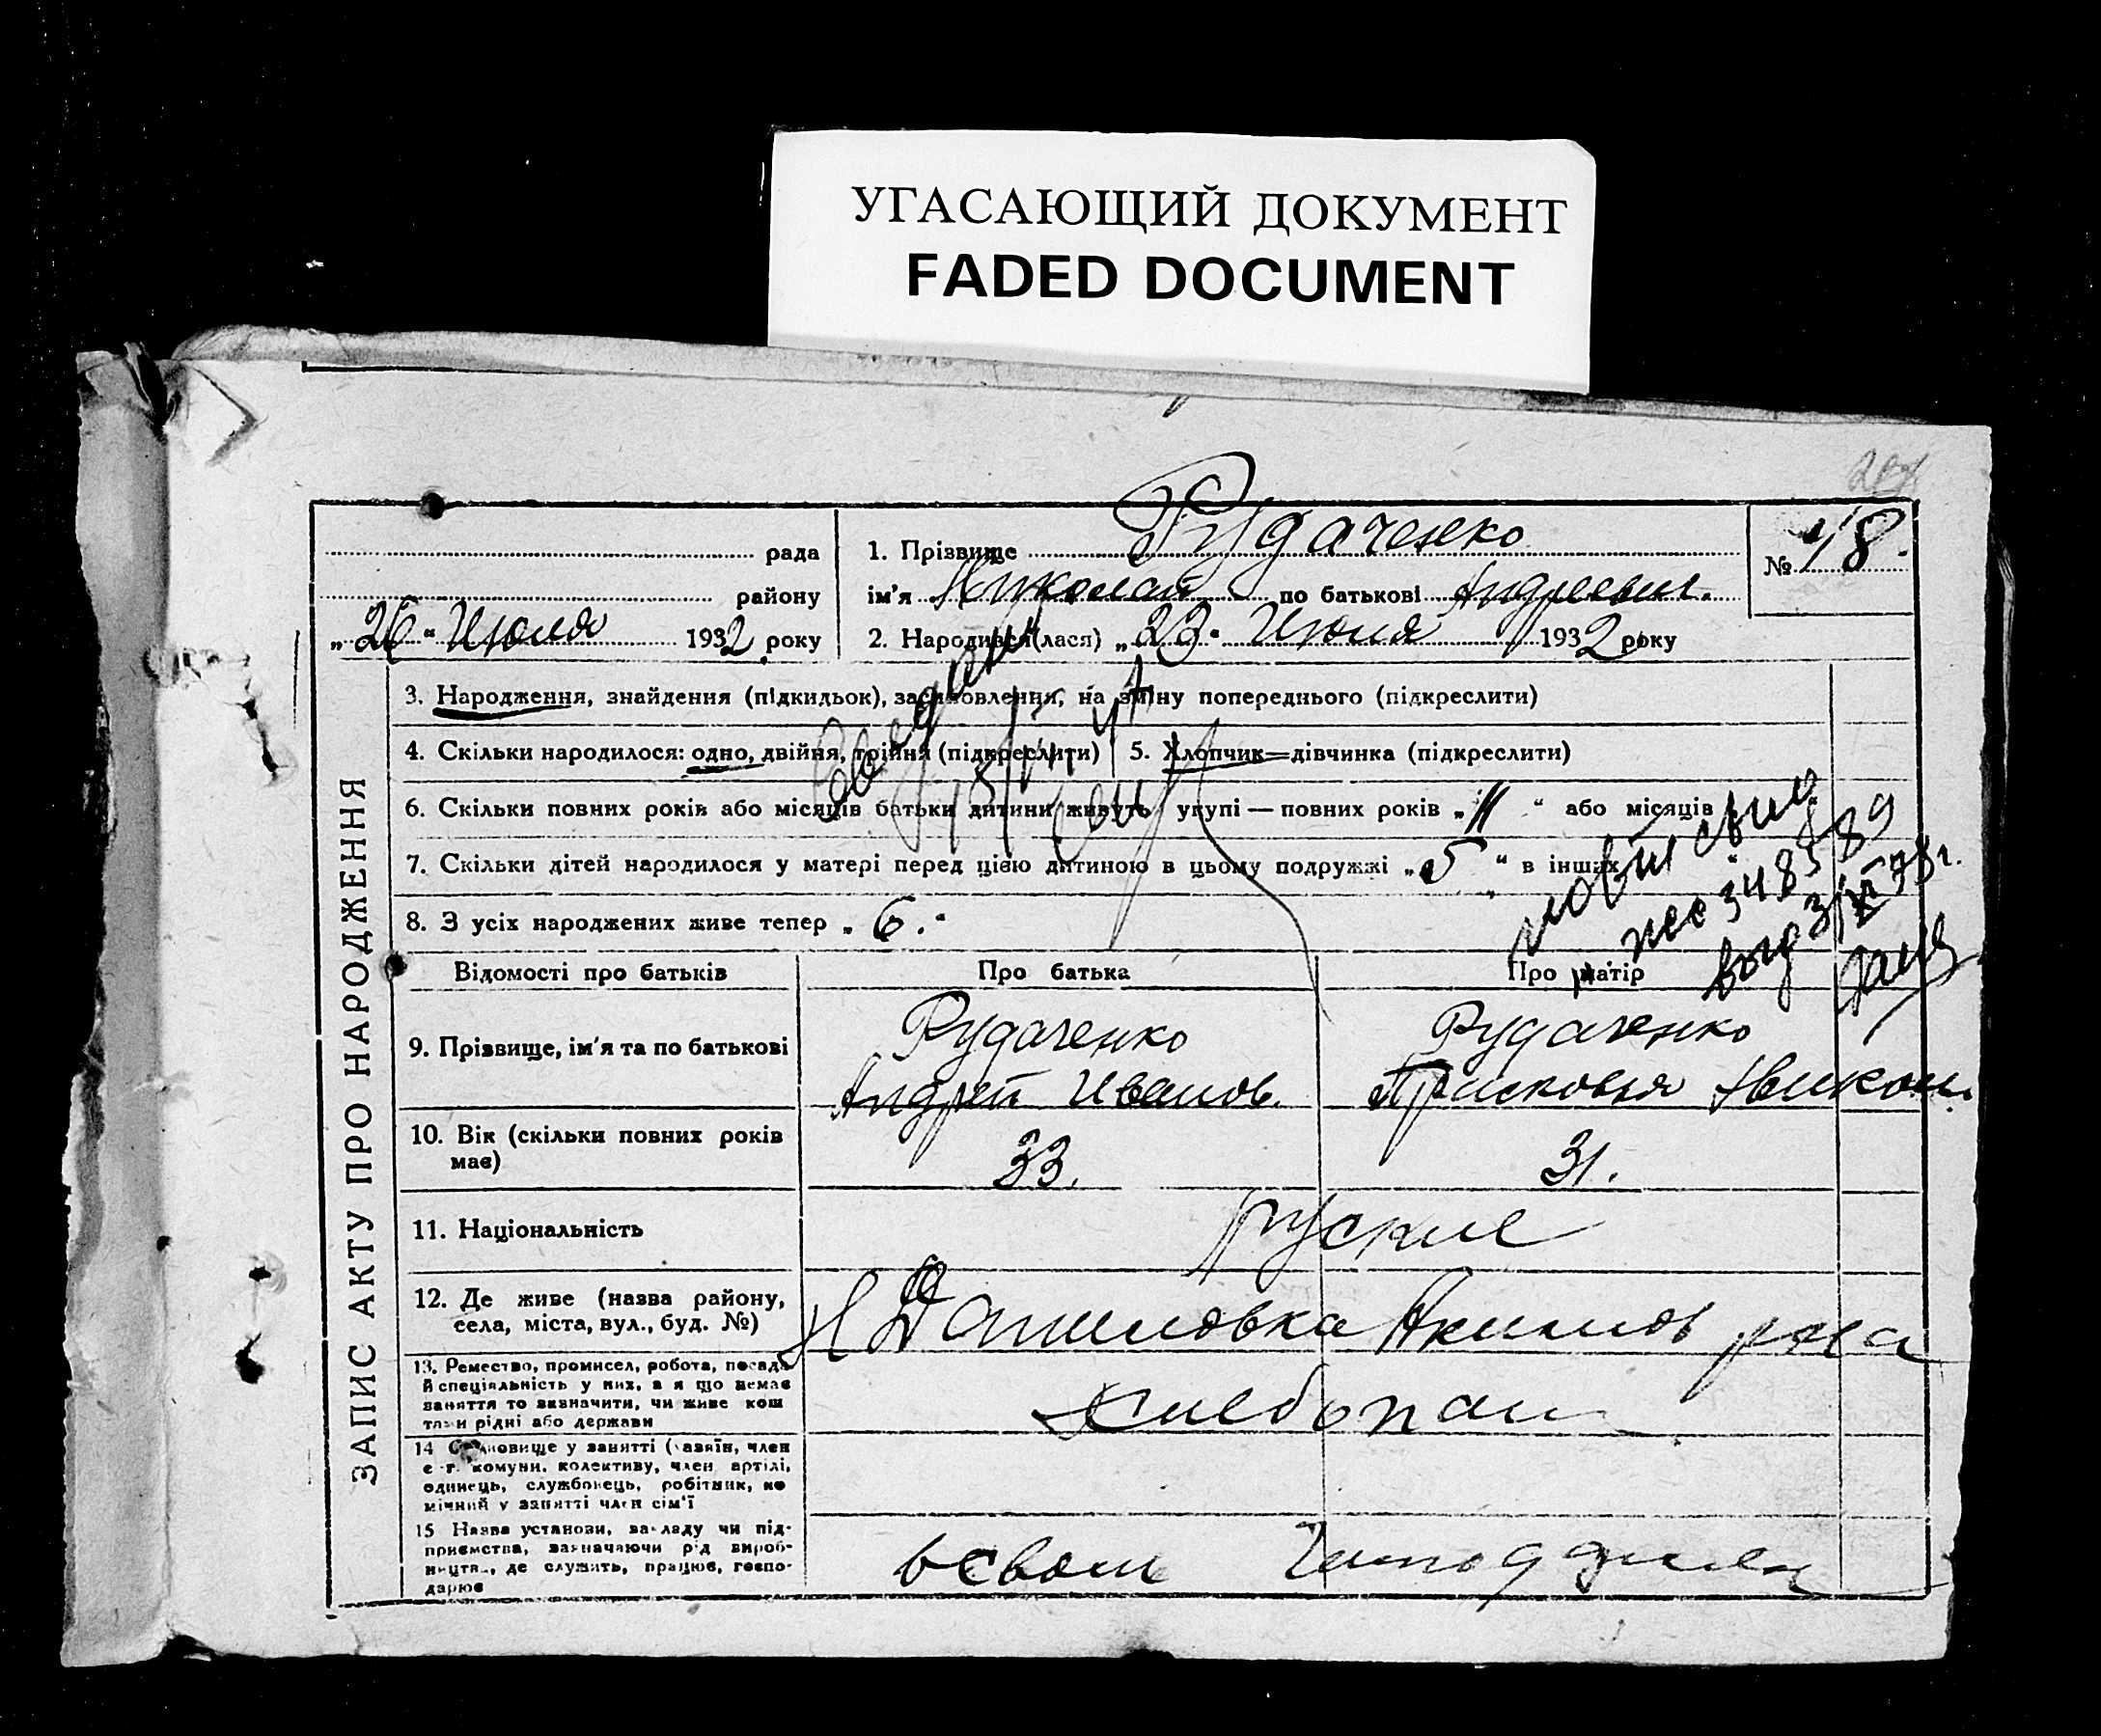 УГАСАЮЩИЙ ДОКУМЕНТ
FADED DOCUMENT
рада
району
„26“ Июля 1932 року
1. Прізвище Рудаченко
ім'я Николай по батькові Андреевич.
2. Народився(лася) „23“ Июля 1932 року
№ 48.
ЗАПИС АКТУ ПРО НАРОДЖЕННЯ
3. Народження, знайдення (підкидьок), засиновлення, на зміну попереднього (підкреслити)
4. Скільки народилося: одно, двійня, трійня (підкреслити)
5. Хлопчик=дівчинка (підкреслити)
6. Скільки повних років або місяців батьки дитини живуть укупі — повних років „11“ або місяців
7. Скільки дітей народилося у матері перед цією дитиною в цьому подружжі „5“ в інших
8. З усіх народжених живе тепер „6.“
Відомості про батьків
Про батька
Про матір
9. Прізвище, ім'я та по батькові
Рудаченко
Андрей Иванов.
Рудаченко
Прасковья
10. Вік (скільки повних років має)
33.
31.
11. Національність
руские
12. Де живе (назва району, села, міста, вул., буд. №)
Н Даниловка Акимов р-на
13. Ремество, промисел, робота, посада й спеціяльність у них, а якщо немає заняття то зазначити, чи живе коштами рідні або держави
хлебопаш
14 Становище у занятті (хазяїн, член с.-г. комуни, колективу, член артілі, одинець, службовець, робітник, помічний у занятті член сім'ї
15 Назва установи, закладу чи підприємства, зазначаючи рід виробництва, де служить, працює, господарює
в своем
новый
348589